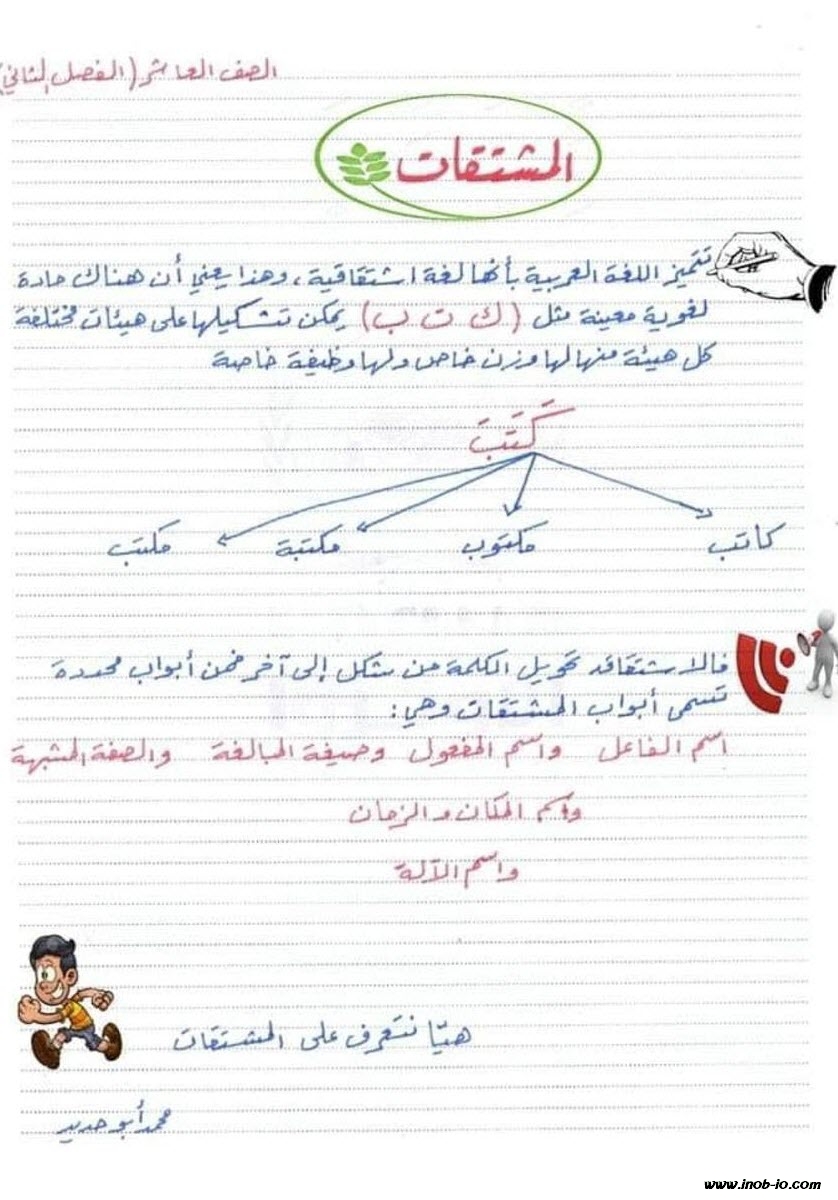 الصف العاشر (الفصل الثاني)
المشتقات
تتميز اللغة العربية بأنها لغة اشتقاقية، وهذا يعني أن هناك مادة
لغوية معينة مثل (ك ت ب) يمكن تشكيلها على هيئات مختلفة
كل هيئة منها لها وزن خاص ولها وظيفة خاصة
كَتَبَ
كاتب مكتوب مكتبة مكتب
فالاشتقاق تحويل الكلمة من شكل إلى آخر ضمن أبواب محددة
تسمى أبواب المشتقات وهي:
اسم الفاعل واسم المفعول وصيغة المبالغة والصفة المشبهة
واسم المكان والزمان
واسم الآلة
هيّا نتعرف على المشتقات
محمد أبو حديد
www.inob-io.com